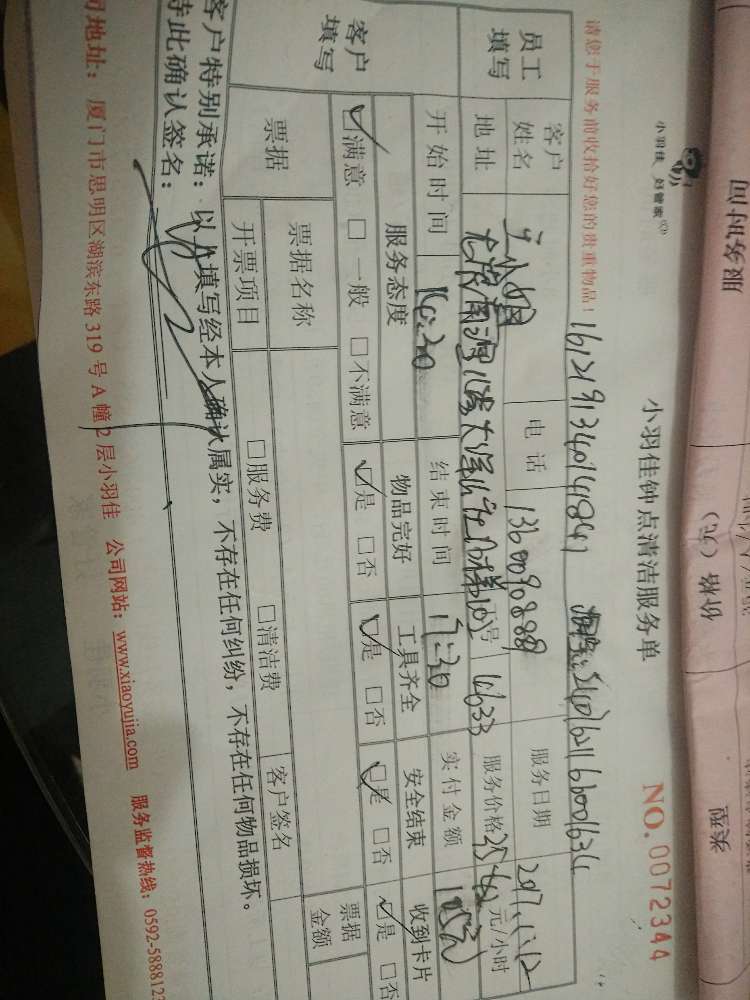 服务时间
价格（元）
小羽佳 好管家
小羽佳钟点清洁服务单
NO. 0072344
请您于服务前收拾好您的贵重物品！
161219134014841
员工填写
客户姓名
电话
1360090888
服务日期
2017.1.12
地址
工号
4633
服务价格
元/小时
开始时间
16:30
结束时间
17:30
实付金额
客户填写
服务态度
物品完好
工具齐全
安全结束
收到卡片
☑满意 □一般 □不满意
☑是 □否
☑是 □否
☑是 □否
☑是 □否
票据
票据名称
票据金额
开票项目
□服务费
□清洁费
客户签名
客户特别承诺：以上填写经本人确认属实，不存在任何纠纷，不存在任何物品损坏。
特此确认签名：
司地址：厦门市思明区湖滨东路 319 号 A 幢 2 层小羽佳 公司网站：www.xiaoyujia.com 服务监督热线：0592-5888123